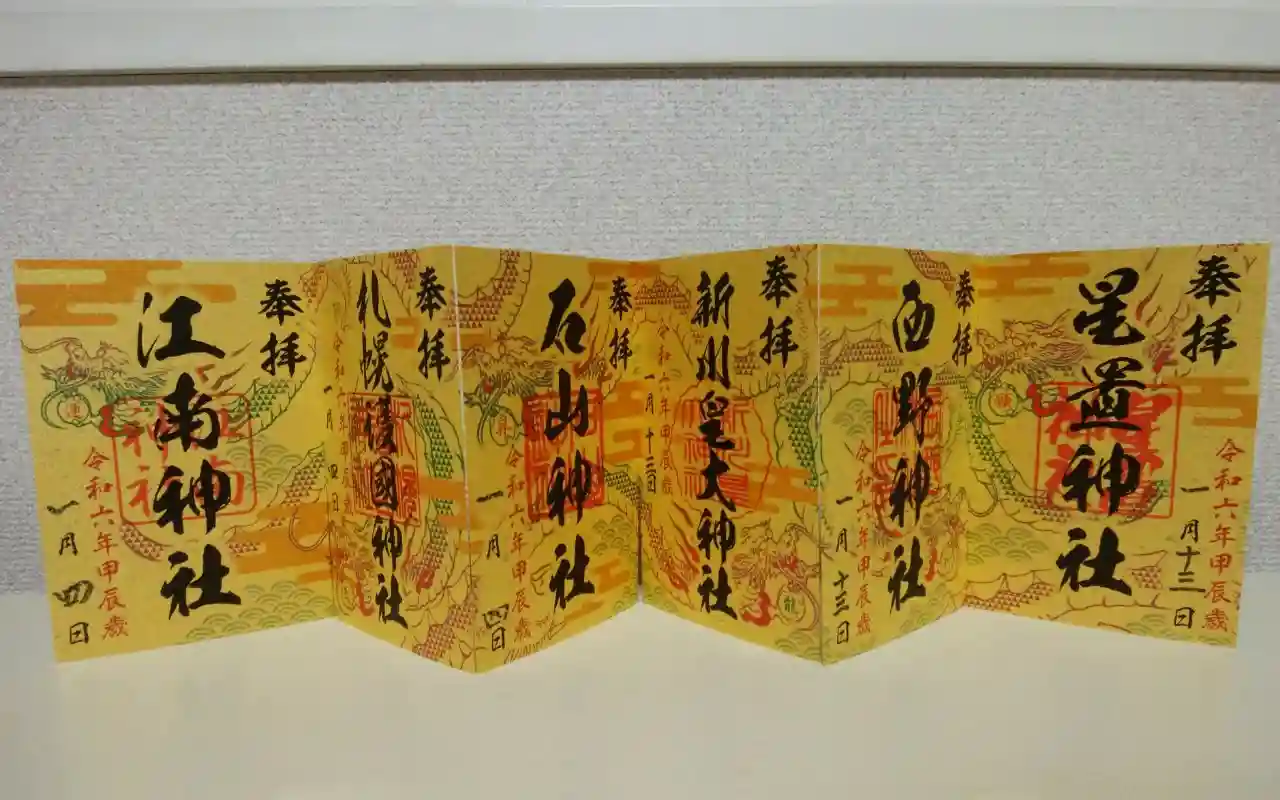 奉拝
令和六年甲辰歳
一月十三日
星置神社
星置神社
奉拝
西野神社
令和六年甲辰歳
一月十三日
奉拝
新川皇大神社
令和六年甲辰歳
一月十三日
龍
奉拝
石山神社
昇
令和六年甲辰歳
一月四日
奉拝
札幌護國神社
令和六年甲辰歳
一月四日
奉拝
江南神社
江南神社
運
令和六年甲辰歳
一月四日